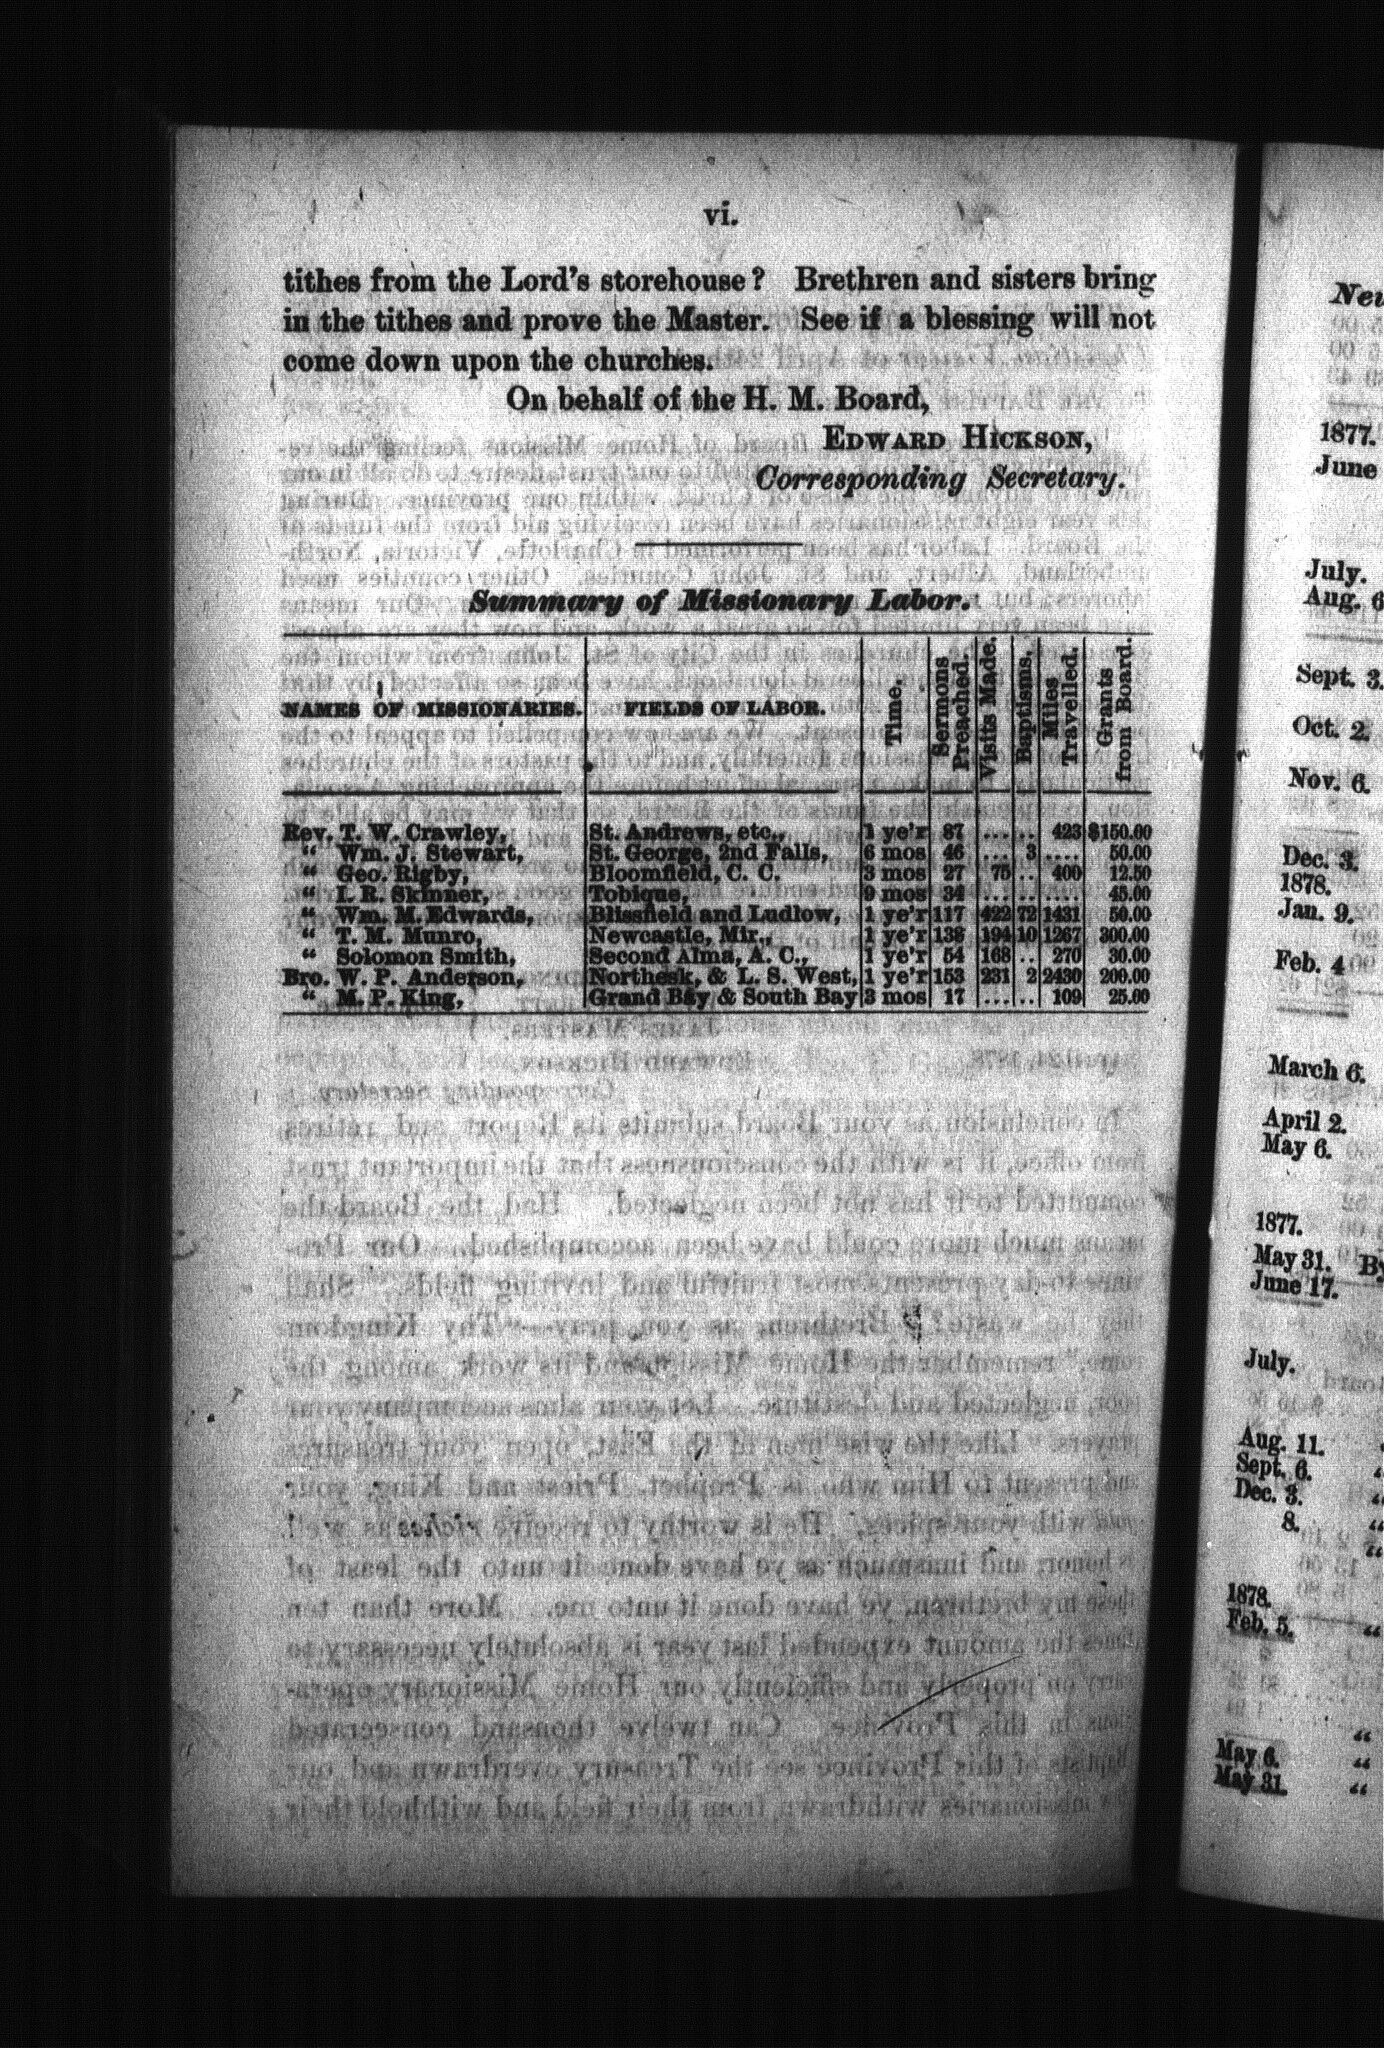 vi.
tithes from the Lord's storehouse? Brethren and sisters bring
in the tithes and prove the Master. See if a blessing will not
come down upon the churches.
On behalf of the H. M. Board,
EDWARD HICKSON,
Corresponding Secretary.
Summary of Missionary Labor.
NAMES OF MISSIONARIES. FIELDS OF LABOR. Time. Sermons Preached. Visits Made. Baptisms. Miles Travelled. Grants from Board.
Rev. T. W. Crawley, St. Andrews, etc., 1 ye'r 87 .... .. 423 $150.00
“ Wm. J. Stewart, St. George, 2nd Falls, 6 mos 46 .... 3 .... 50.00
“ Geo. Rigby, Bloomfield, C. C. 3 mos 27 75 .. 400 12.50
“ I. R. Skinner, Tobique, 9 mos 34 .... .. .... 45.00
“ Wm. M. Edwards, Blissfield and Ludlow, 1 ye'r 117 422 72 1431 50.00
“ T. M. Munro, Newcastle, Mir., 1 ye'r 138 194 10 1267 300.00
“ Solomon Smith, Second Alma, A. C., 1 ye'r 54 168 .. 270 30.00
Bro. W. P. Anderson, Northesk, & L. S. West, 1 ye'r 153 231 2 2430 200.00
“ M. P. King, Grand Bay & South Bay 3 mos 17 .... .. 109 25.00
1877.
June
July.
Aug. 6
Sept. 3.
Oct. 2.
Nov. 6.
Dec. 3.
1878.
Jan. 9.
Feb. 4
March 6.
April 2.
May 6.
1877.
May 31. By
June 17.
July.
Aug. 11.
Sept. 6. “
Dec. 3. “
8. “
“
1878.
Feb. 5. “
“
May 6. “
May 31. “